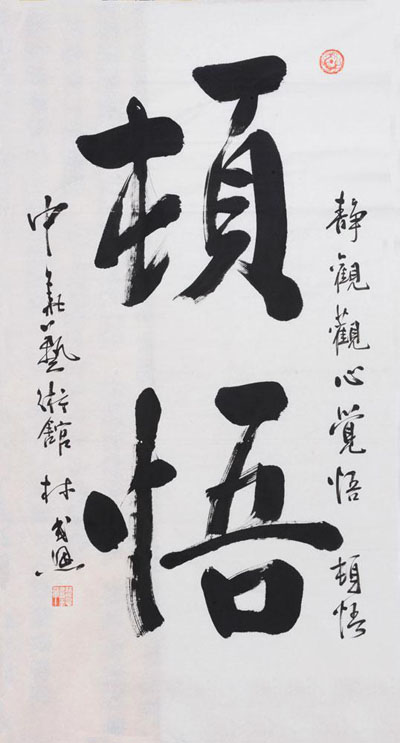 靜觀觀心覺悟 頓悟
頓悟
中華藝術館 林